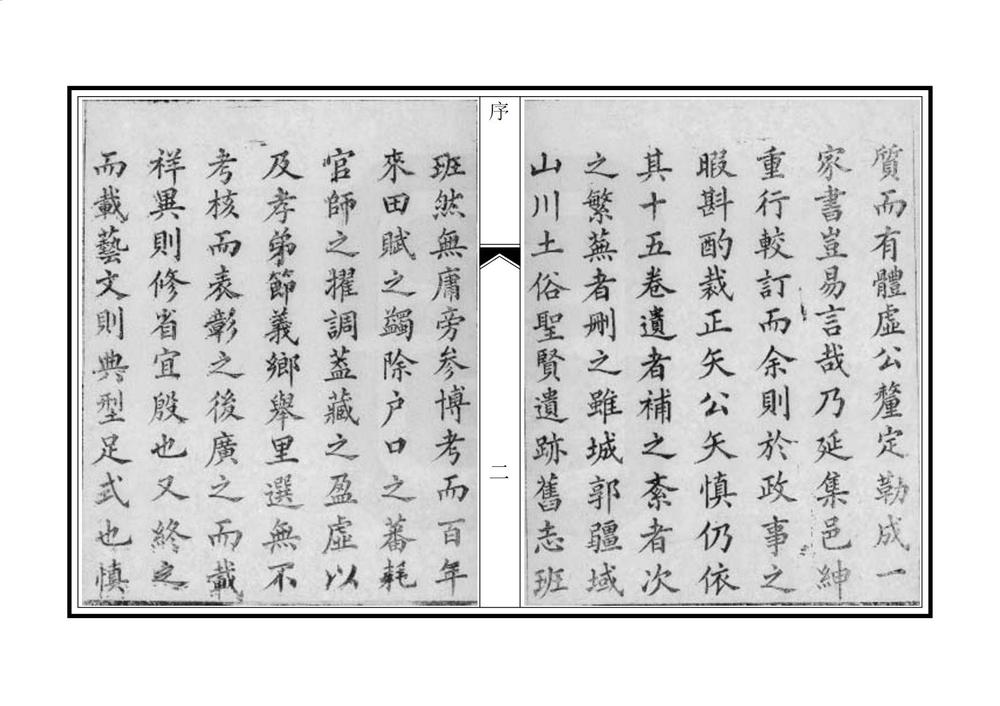 質而有體虛公釐定勒成一
家書豈易言哉乃延集邑紳
重行較訂而余則於政事之
暇斟酌裁正矢公矢慎仍依
其十五卷遺者補之紊者次
之繁蕪者刪之雖城郭疆域
山川土俗聖賢遺跡舊志班
序
二
班然無庸旁參博考而百年
來田賦之蠲除户口之蕃耗
官師之擢調葢藏之盈虛以
及孝弟節義鄉舉里選無不
考核而表彰之後廣之而載
祥異則修省宜殷也又終之
而載藝文則典型足式也慎